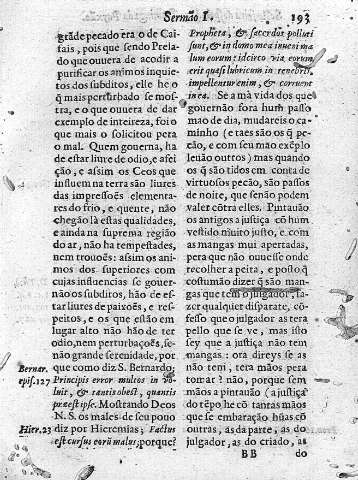 Sermão I.
193
grãde pecado era o de Cai-
tais, pois que sendo Prela-
do que ouuera de acodir a
purificar os animos inquie-
tos dos subditos, elle he o
q̃ mais perturbado se mos-
tra, e o que ouuera de dar
exemplo de inteireza, foi o
que mais o solicitou pera
o mal. Quem gouerna, ha
de estar liure de odio, e afei-
ção, e assim os Ceos que
influem na terra são liures
das impressoẽs elementa-
res do frio, e quente, não
chegão lá estas qualidades,
e ainda na suprema região
do ar, não ha tempestades,
nem trouoẽs: assim os ani-
mos dos superiores com
cujas influencias se gouer-
não os subditos, hão de es-
tar liures de paixoẽs, e res-
peitos, e os que estão em
lugar alto não hão de ter
odio, nem perturbaçoẽs, se-
não grande serenidade, por
que como diz S. Bernardo,
Principis error multos in vo-
luit, & tantis obest, quantis
præest ipse. Mostrando Deos
N. S. os males de seu pouo
diz por Hieremias; Factus
est cursus eorũ malus, porque?
Bernar.
epis. 127
Hier. 23
Propheta, & sacerdos polluti
sunt, & in domo mea inueni ma
lum eorum: idcirco via eorum
erit quasi lubricum in tenebris,
impellentur enim, & corruent
in ea. Se a má vida dos que
gouernão fora hum passo
mao de dia, mudareis o ca-
minho (e taes são os q̃ pe-
cão, e com seu mao exẽplo
leuão outros) mas quando
os q̃ são tidos em conta de
virtuosos pecão, são passos
de noite, que senão podem
valer cõtra elles. Pintauão
os antigos a justiça cõ hum
vestido muito justo, e com
as mangas mui apertadas,
pera que não ouuesse onde
recolher a peita, e posto q̃
costumão dizer q̃ são man-
gas que tem o julgador, fa-
zer qualquer disparate, cõ-
fesso que o julgador as tera
pello que se ve, mas isto
sey que a justiça não tem
mangas: ora direys se as
não tem, tera mãos pera
tomar? não, porque sem
mãos a pintauão (a justiça
do tẽpo he cõ tantas mãos
que se embaração hũas cõ
outras, as da parte, as do
julgador, as do criado, as
BB
do